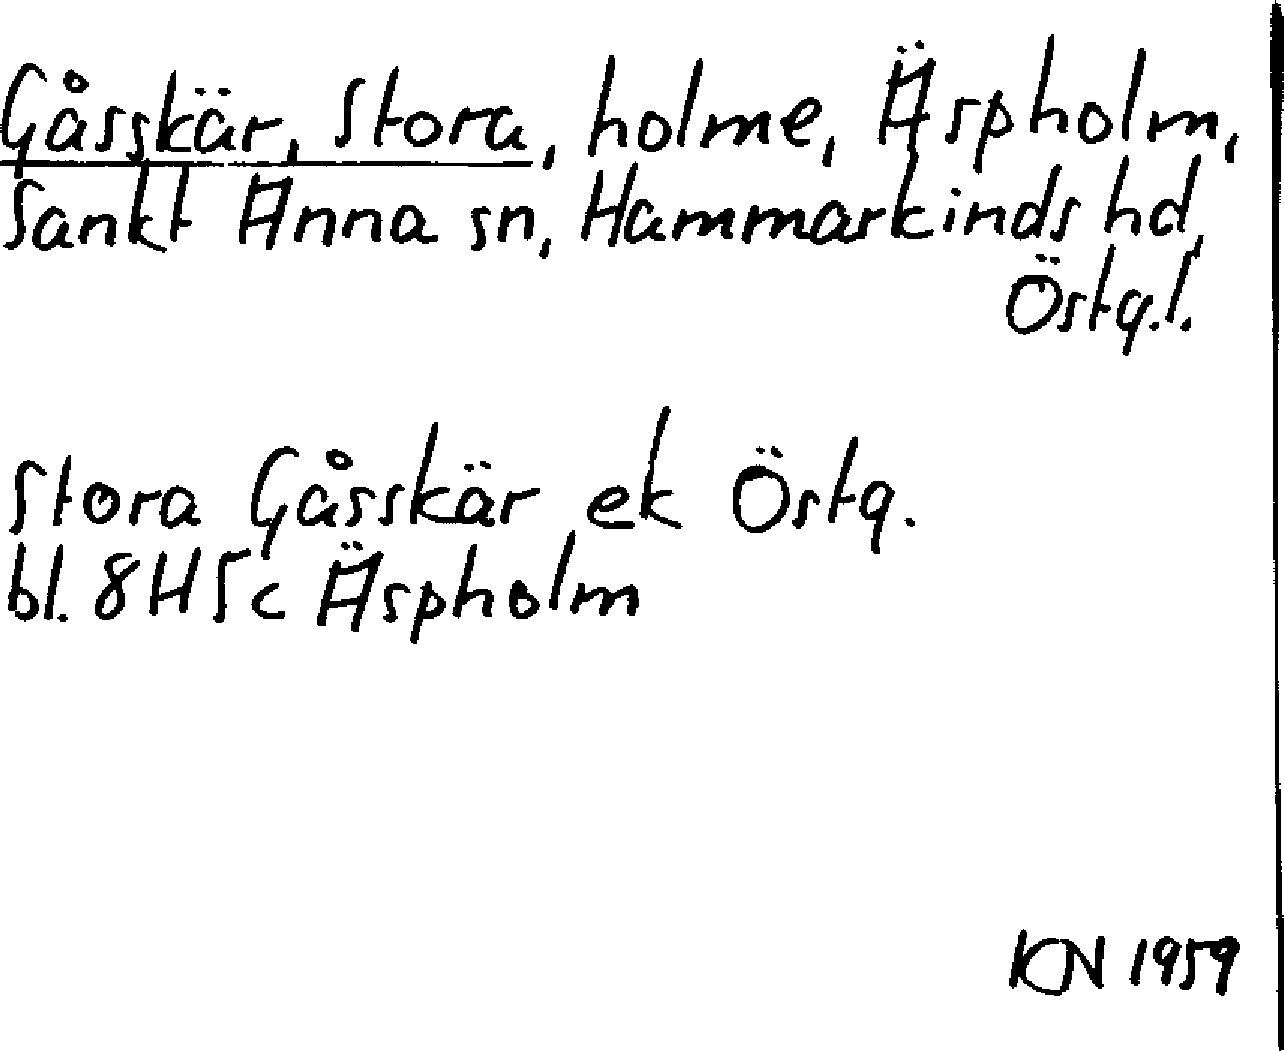 Gåsskär, Stora, holme, Äspholm,
Sankt Anna sn, Hammarkinds hd,
Östg.l.
Stora Gåsskär ek Östg.
bl. 8H5c Äspholm
KN 1959